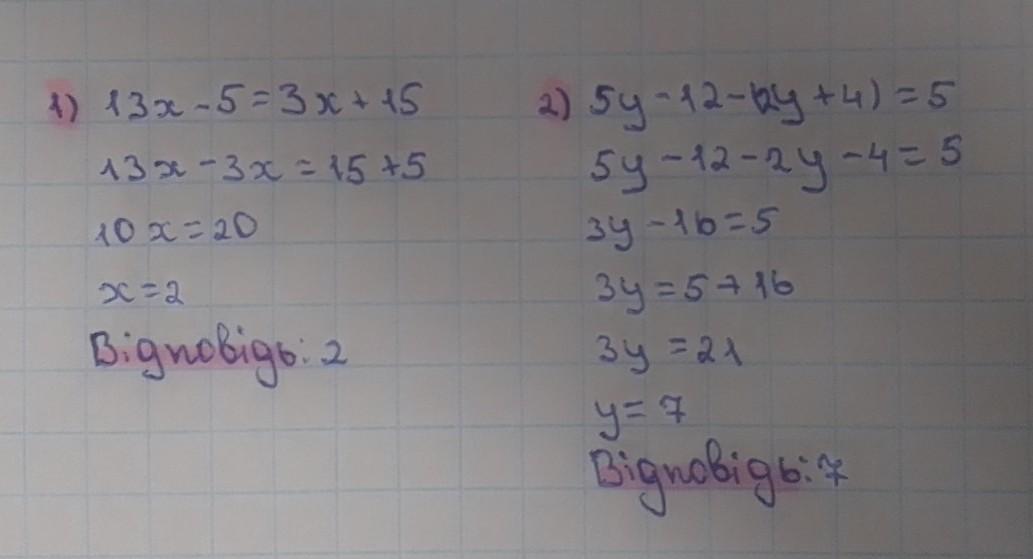 1) 13x - 5 = 3x + 15
13x - 3x = 15 + 5
10x = 20
x = 2
Відповідь: 2
2) 5y - 12 - (2y + 4) = 5
5y - 12 - 2y - 4 = 5
3y - 16 = 5
3y = 5 + 16
3y = 21
y = 7
Відповідь: 7